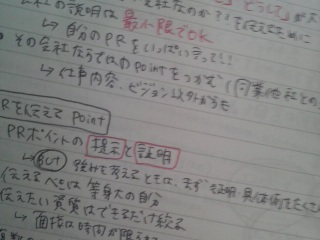 会社の説明は最小限でOK
→自分のPRをいっぱい言って!!
その会社ならではのPointをつかむ(同業他社との、
→仕事内容、ビジョン以外からも
Rを伝える Point
PRポイントの提示と証明
→But 強みを考えるときは、まず証明
伝えるべきは等身大の自分
伝えたい資質はできるだけ絞る
→面接は時間が限